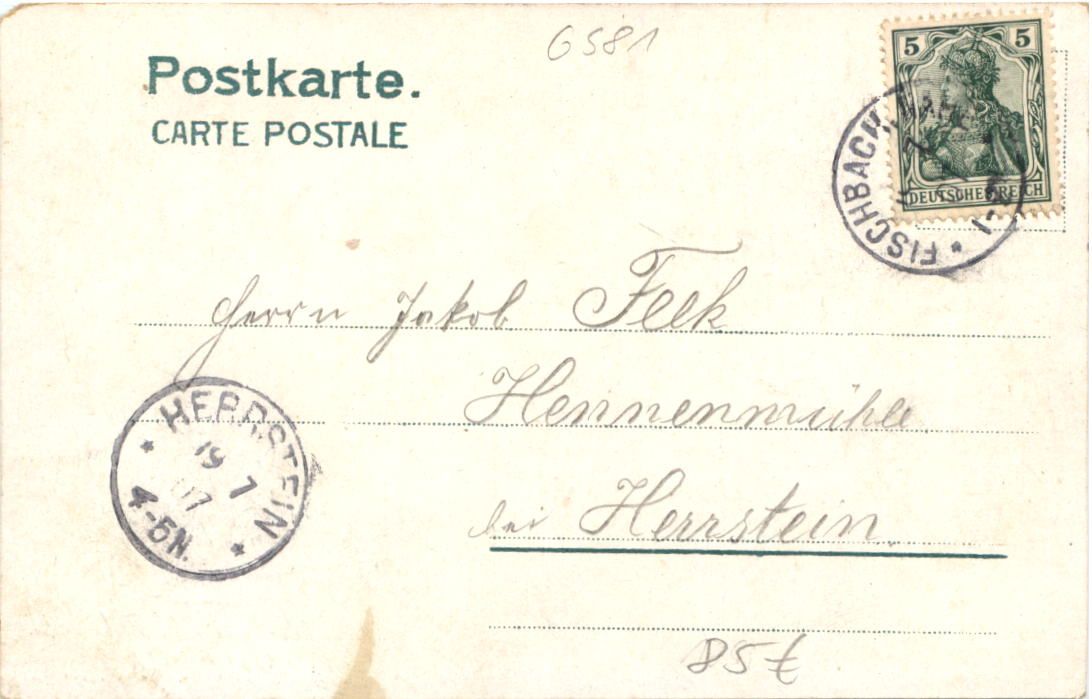 6581
Postkarte.
CARTE POSTALE
5 5
DEUTSCHES REICH
FISCHBACH
Herrn Jakob Felk
Hennenmühle
bei Herrstein.
* HERRSTEIN *
19 7
07
4-5N.
85€